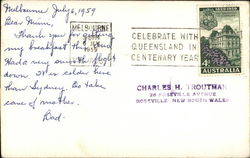 Melbourne July 6, 1959
Dear Mimi,
Thank you for getting
my breakfast this a.m.
Had a very smooth flight
down. It is colder here
than Sydney. Do take
care of mother.
Dad.
MELBOURNE
6 JLY
1959
CELEBRATE WITH
QUEENSLAND IN
CENTENARY YEAR
4D
AUSTRALIA
CHARLES H. TROUTMAN
26 ROSEVILLE AVENUE
ROSEVILLE NEW SOUTH WALES